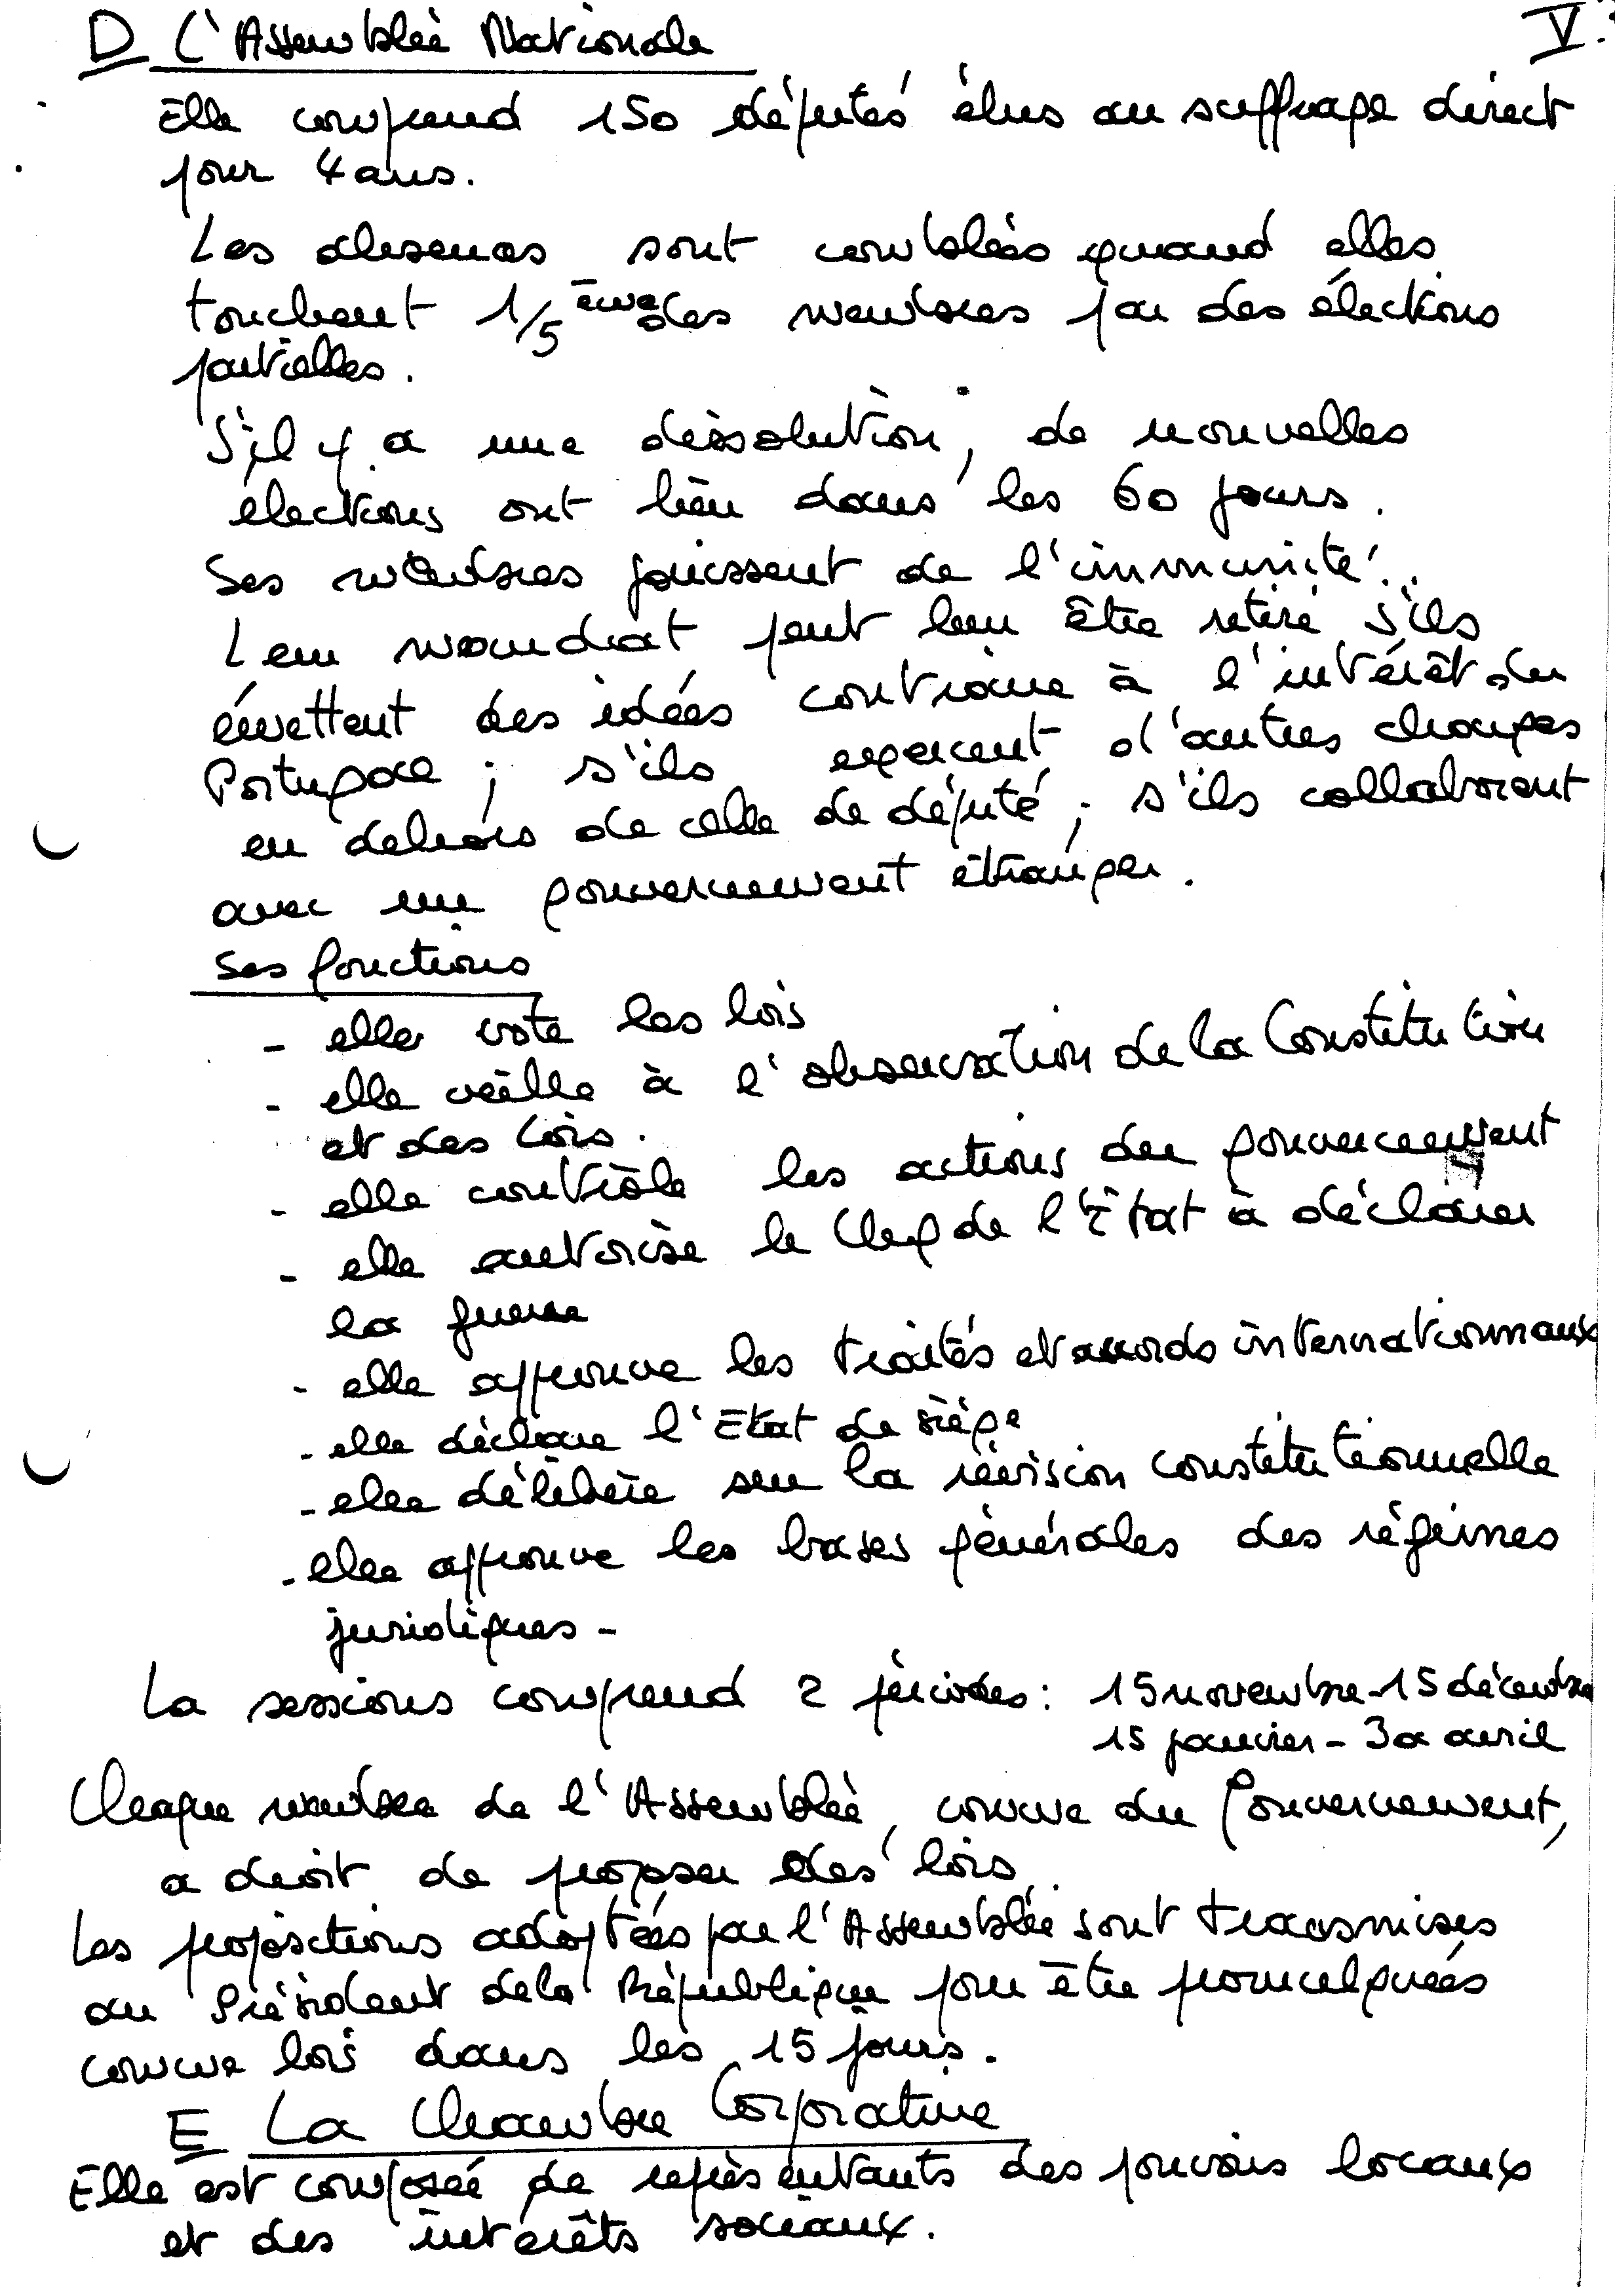 V
D L'Assemblée Nationale
Elle comprend 150 députés élus au suffrage direct
pour 4 ans.
Les absences sont comblées quand elles
touchent 1/5 ème des membres par des élections
partielles.
S'il y a une dissolution, de nouvelles
élections ont lieu dans les 60 jours.
Ses membres jouissent de l'immunité.
Leur mandat peut leur être retiré s'ils
émettent des idées contraire à l'intérêt du
Portugal ; s'ils exercent d'autres charges
en dehors de celle de député ; s'ils collaborent
avec un gouvernement étranger.
Ses fonctions
- elle vote les lois
- elle veille à l'observation de la Constitution
et des lois.
- elle contrôle les actions du gouvernement
- elle autorise le Chef de l'État à déclarer
la guerre
- elle approuve les traités et accords internationnaux
- elle déclare l'Etat de siège
- elle délibère sur la révision constitutionnelle
- elle approuve les bases générales des régimes
juridiques -
La sessions comprend 2 périodes : 15 novembre - 15 décembre
15 janvier - 30 avril
Chaque membre de l'Assemblée, comme du Gouvernement,
a droit de proposer des lois.
Les propositions adoptées par l'Assemblée sont transmises
au Président de la République pour être promulguées
comme loi dans les 15 jours.
E La Chambre Corporative
Elle est composée de représentants des pouvoirs locaux
et des intérêts sociaux.